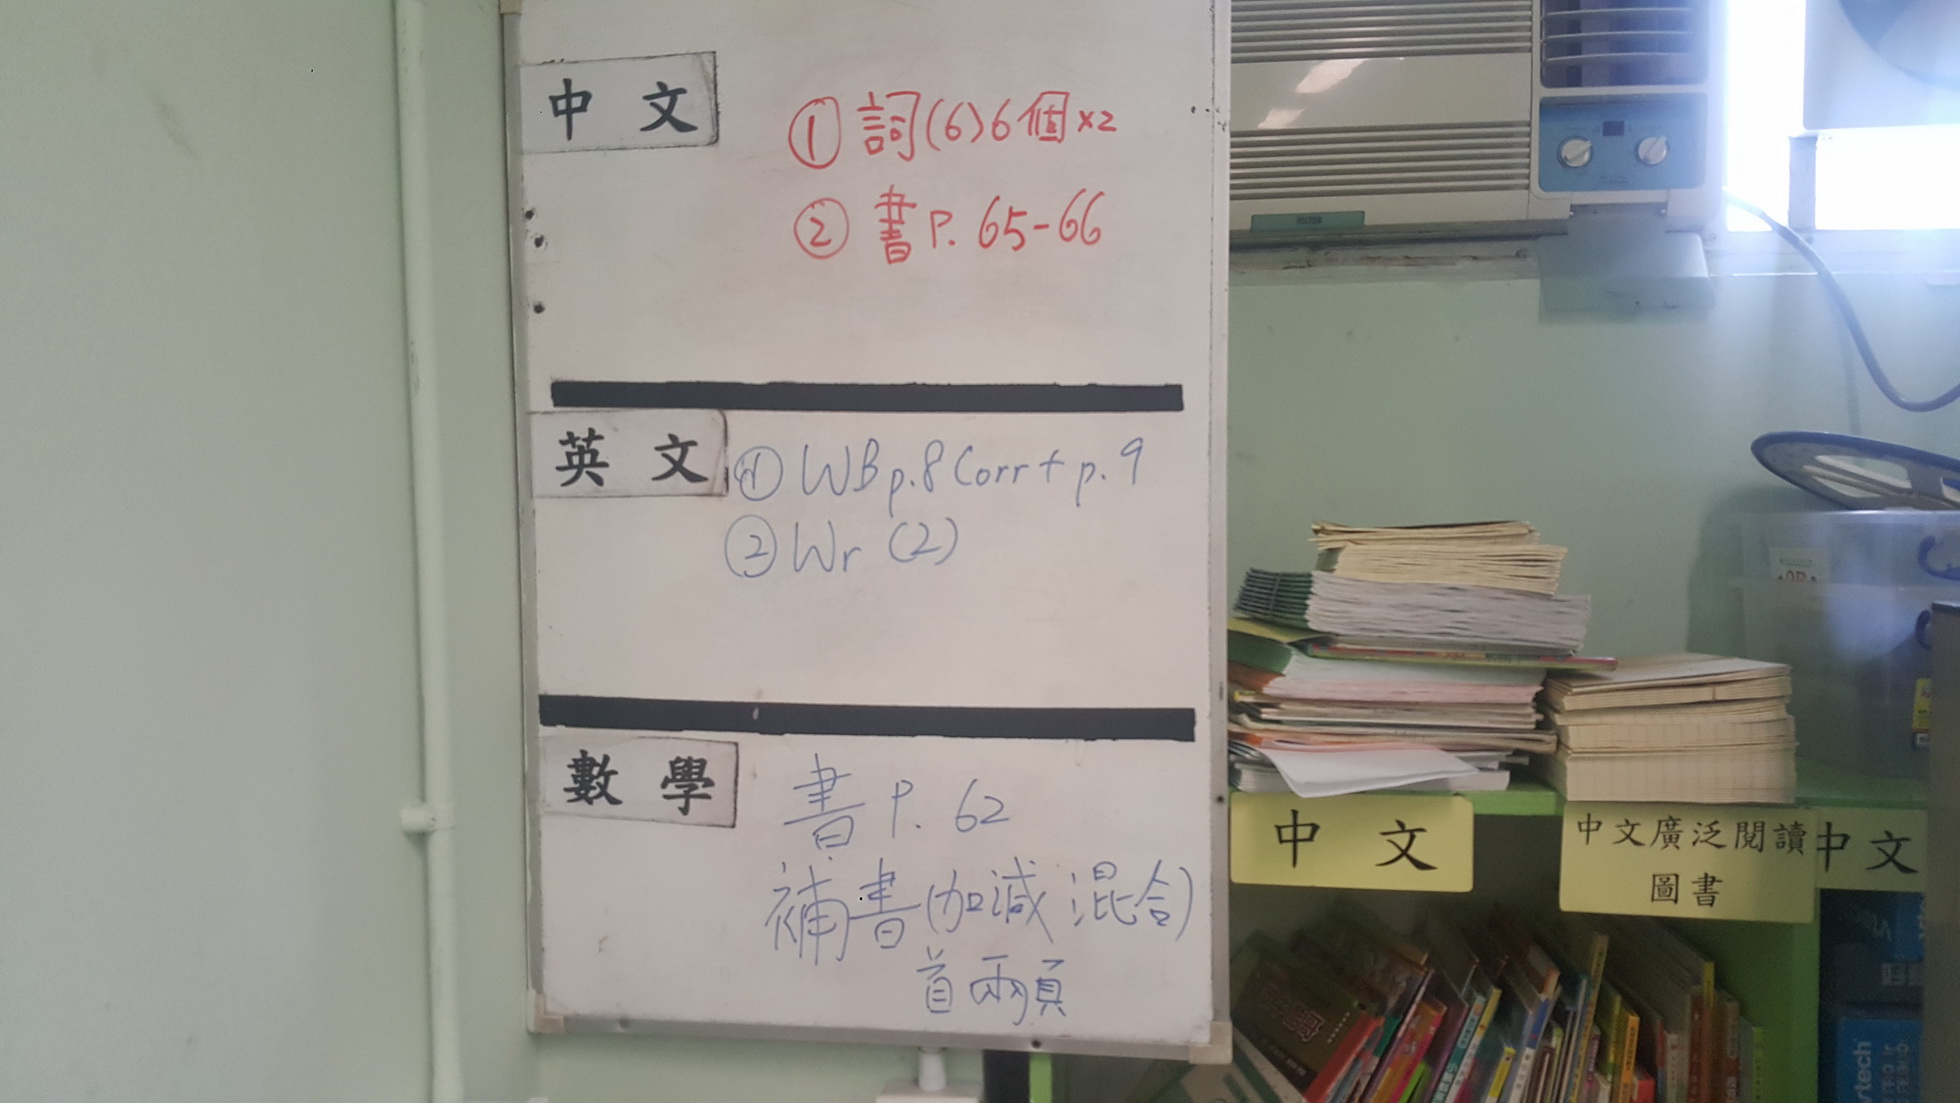 中文
① 詞(6)6個×2
② 書P. 65-66
英文
① WB p.8 Corr + p.9
② Wr (2)
數學
書 P. 62
補書(加減混合)
首兩頁
中文
中文廣泛閱讀
圖書
中文